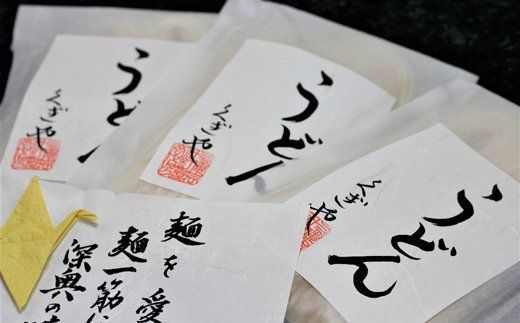 うどん
くぎや
うどん
くぎや
うどん
くぎや
麺を愛
麺一筋に
深奥の